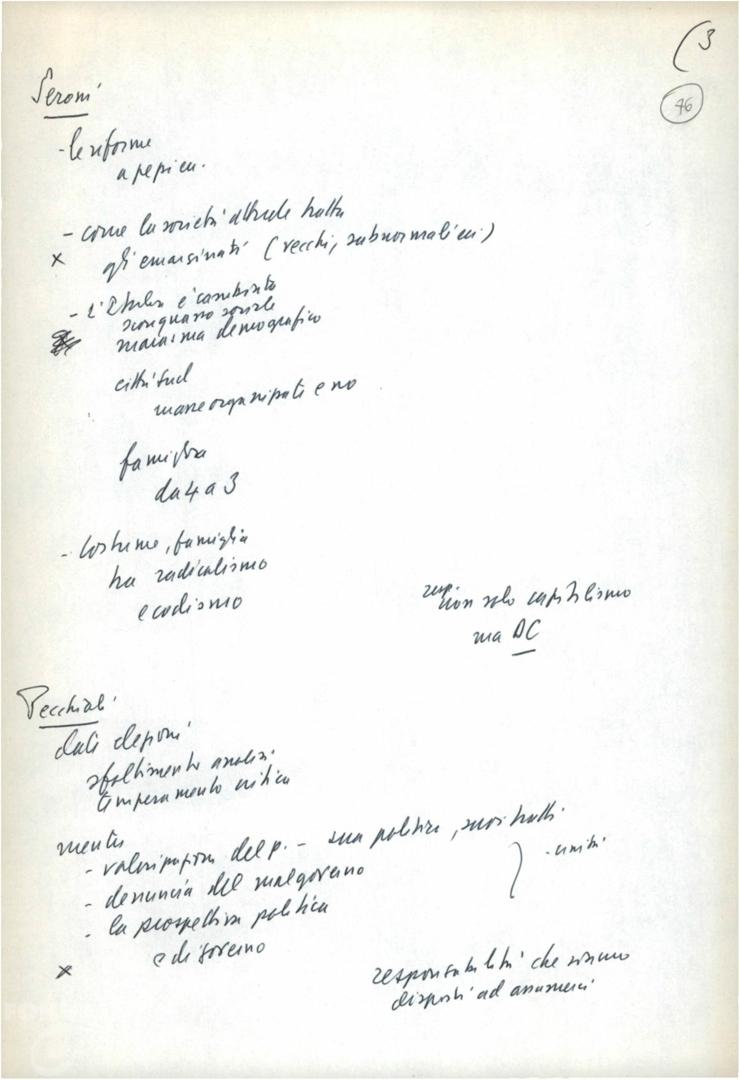 (3
46
Seroni
- le riforme
a pepi cu.
- come la società attuale tratta
x gli emarginati (vecchi, subnormali cu.)
- L'Italia è cambiata
sconquasso sociale
marasma demografico
città sud
masse organizzate e no
famiglia
da 4 a 3
- costume, famiglia
tra radicalismo
e codismo
non solo capitalismo
ma DC
Pecchioli
dati elezioni
sfoltimento analisi
temperamento critica
mentre
- valorizzazione del p. - sua politica, suoi tratti
- denuncia del malgoverno
- unità
- la prospettiva politica
e di governo
x
responsabilità che siamo
disposti ad assumerci